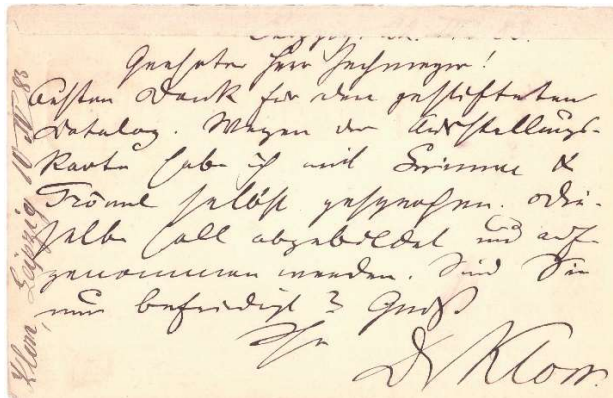 Geehrter Herr Zechmeyer!
Besten Dank für den gestifteten
Katalog. Wegen der Ausstellungs-
karte habe ich mit Grimme &
Trömel selbst gesprochen. Die-
selbe soll abgebildet und auf-
genommen werden. Sind Sie
nun befriedigt? Gruß
Ihr
Dr Kloss.
Kloss, Leipzig 10 IV 83